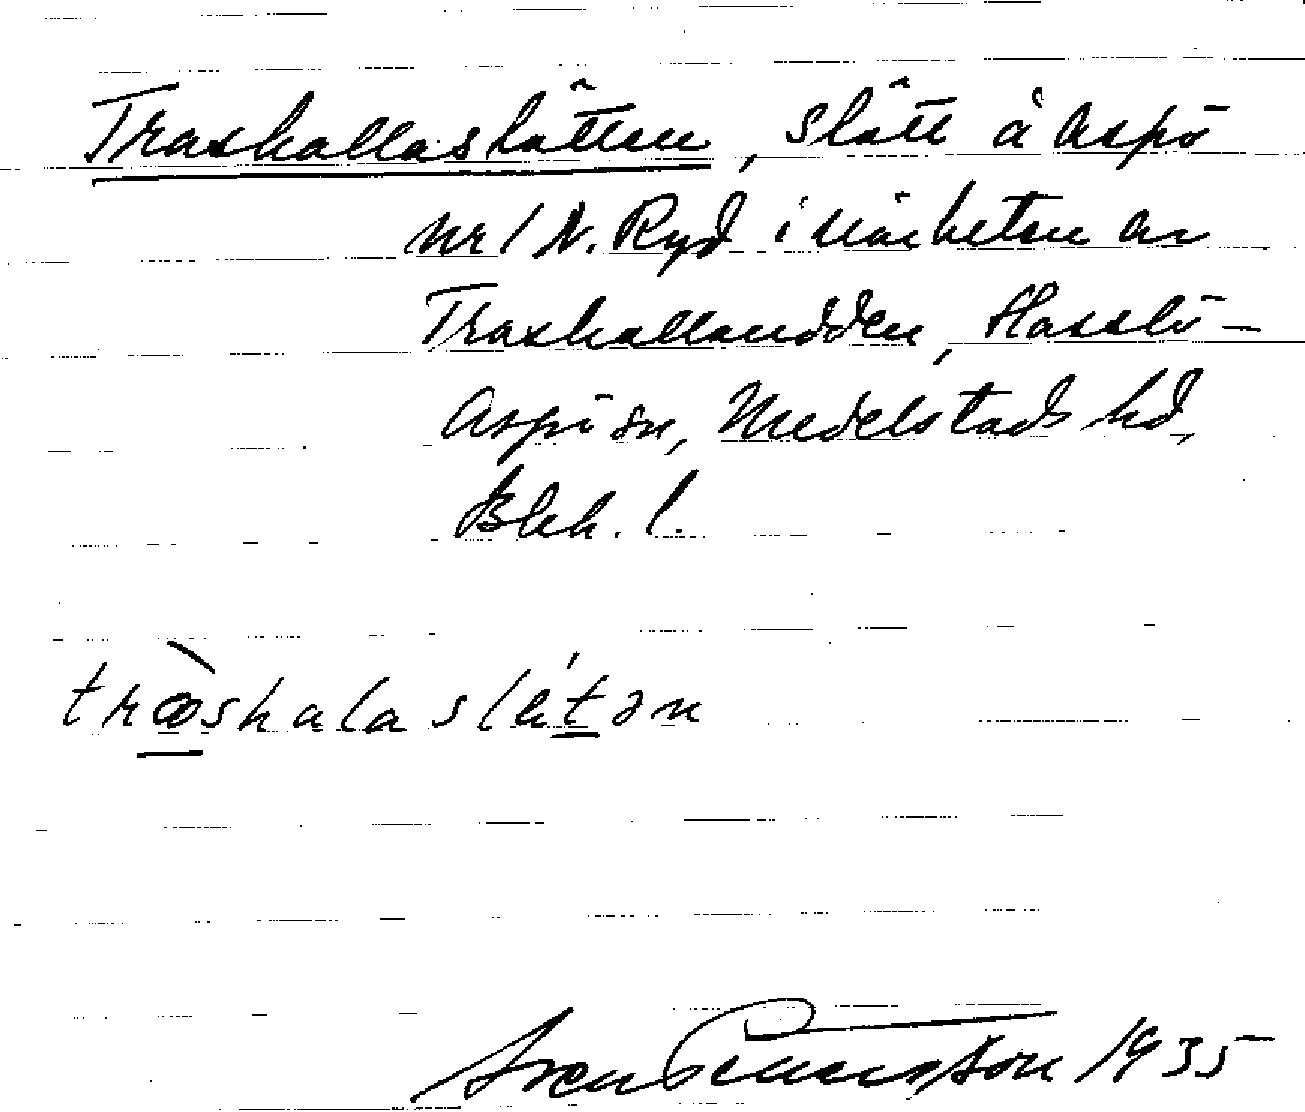 Traskallaslätten, slätt å Aspö
nr 1 N. Ryd i närheten av
Traskalleudden, Hasslö-
Aspö sn, Medelstads hd,
Blek. l.
træ̀skalaslétən
Sven 1935